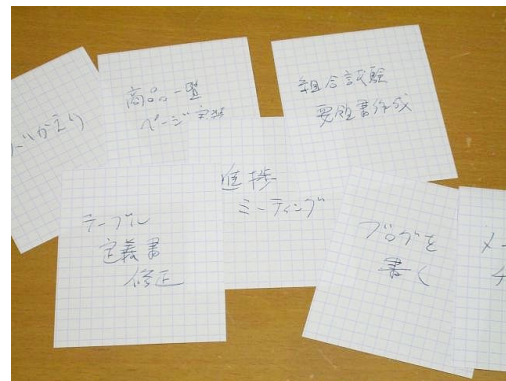 商品一覧
ページ実装
結合試験
要領書作成
進捗
ミーティング
テーブル
定義書
修正
ブログを
書く
メー
チ